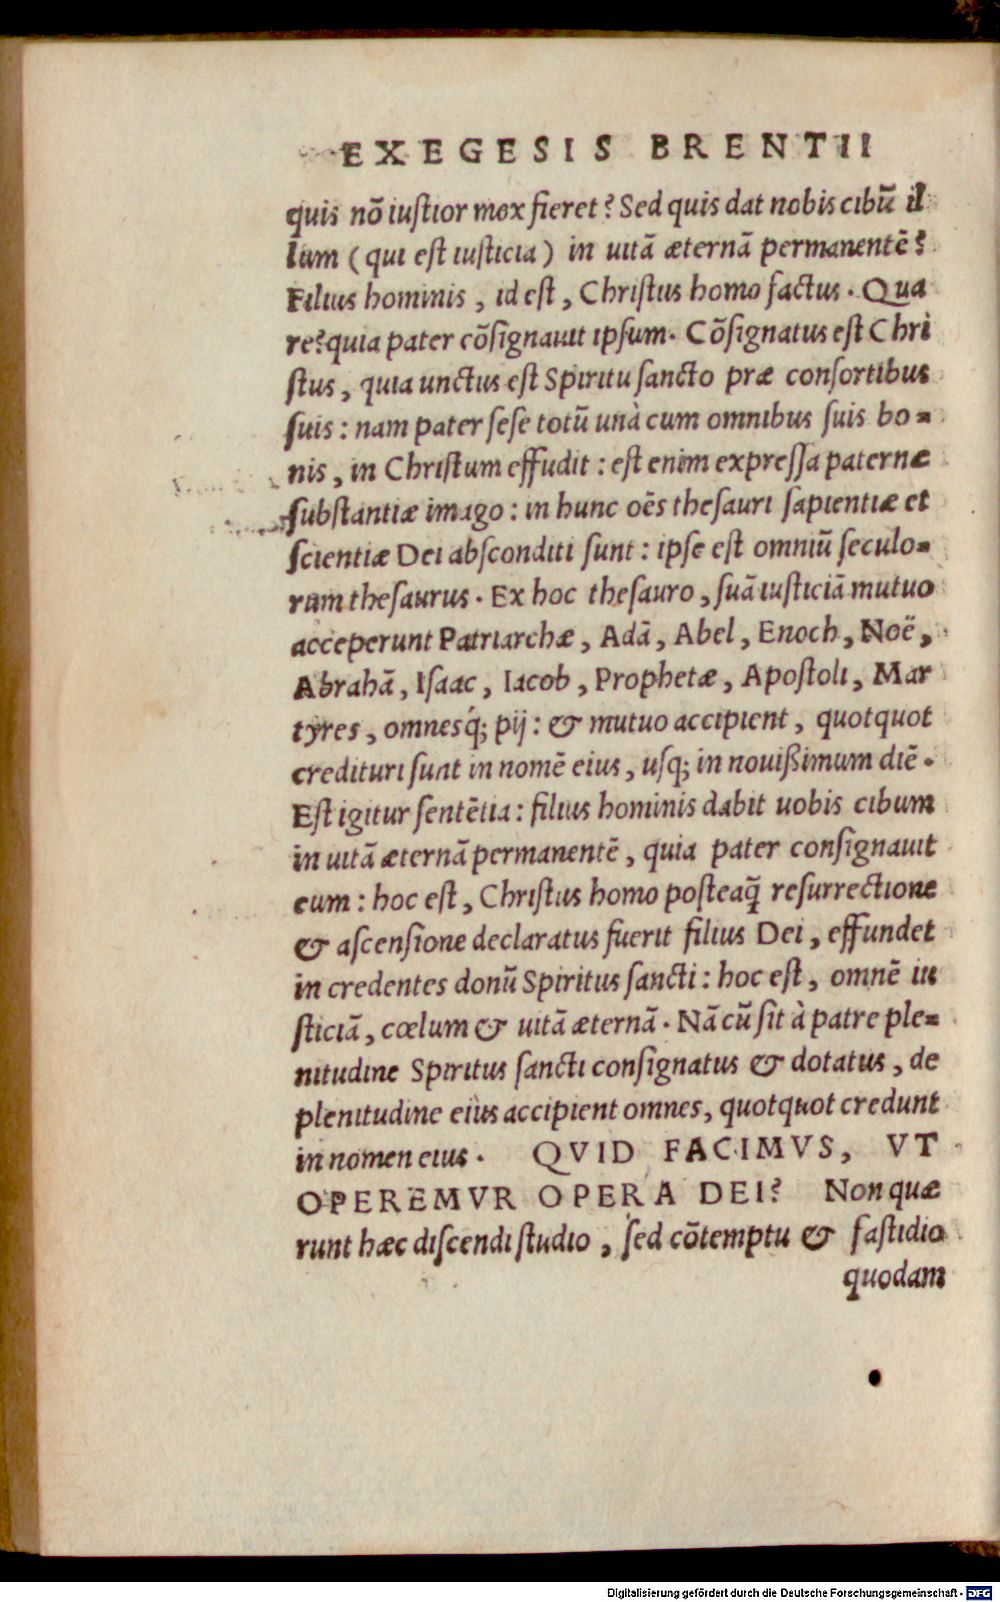 EXEGESIS BRENTII
quis nõ iuſtior mox fieret? Sed quis dat nobis cibũ il
lum (qui eſt iuſticia) in uitã æternã permanentẽ?
Filius hominis, id eſt, Chriſtus homo factus. Qua
re? quia pater cõſignauit ipſum. Cõſignatus eſt Chri
ſtus, quia unctus eſt Spiritu ſancto præ conſortibus
ſuis: nam pater ſeſe totũ unà cum omnibus ſuis bo=
nis, in Chriſtum effudit: eſt enim expreſſa paternæ
ſubſtantiæ imago: in hunc oẽs theſauri ſapientiæ et
ſcientiæ Dei abſconditi ſunt: ipſe eſt omniũ ſeculo=
rum theſaurus. Ex hoc theſauro, ſuã iuſticiã mutuo
acceperunt Patriarchæ, Adã, Abel, Enoch, Noë,
Abrahã, Iſaac, Iacob, Prophetæ, Apoſtoli, Mar
tyres, omnesq́; pij: & mutuo accipient, quotquot
credituri ſunt in nomẽ eius, uſq; in nouißimum diẽ.
Eſt igitur ſentẽtia: filius hominis dabit uobis cibum
in uitã æternã permanentẽ, quia pater conſignauit
eum: hoc eſt, Chriſtus homo poſteaq̃ reſurrectione
& aſcenſione declaratus fuerit filius Dei, effundet
in credentes donũ Spiritus ſancti: hoc eſt, omnẽ iu
ſticiã, cœlum & uitã æternã. Nã cũ ſit à patre ple=
nitudine Spiritus ſancti conſignatus & dotatus, de
plenitudine eius accipient omnes, quotquot credunt
in nomen eius. QVID FACIMVS, VT
OPEREMVR OPERA DEI? Non quæ
runt hæc diſcendi ſtudio, ſed cõtemptu & faſtidio
quodam
Digitalisierung gefördert durch die Deutsche Forschungsgemeinschaft - DFG